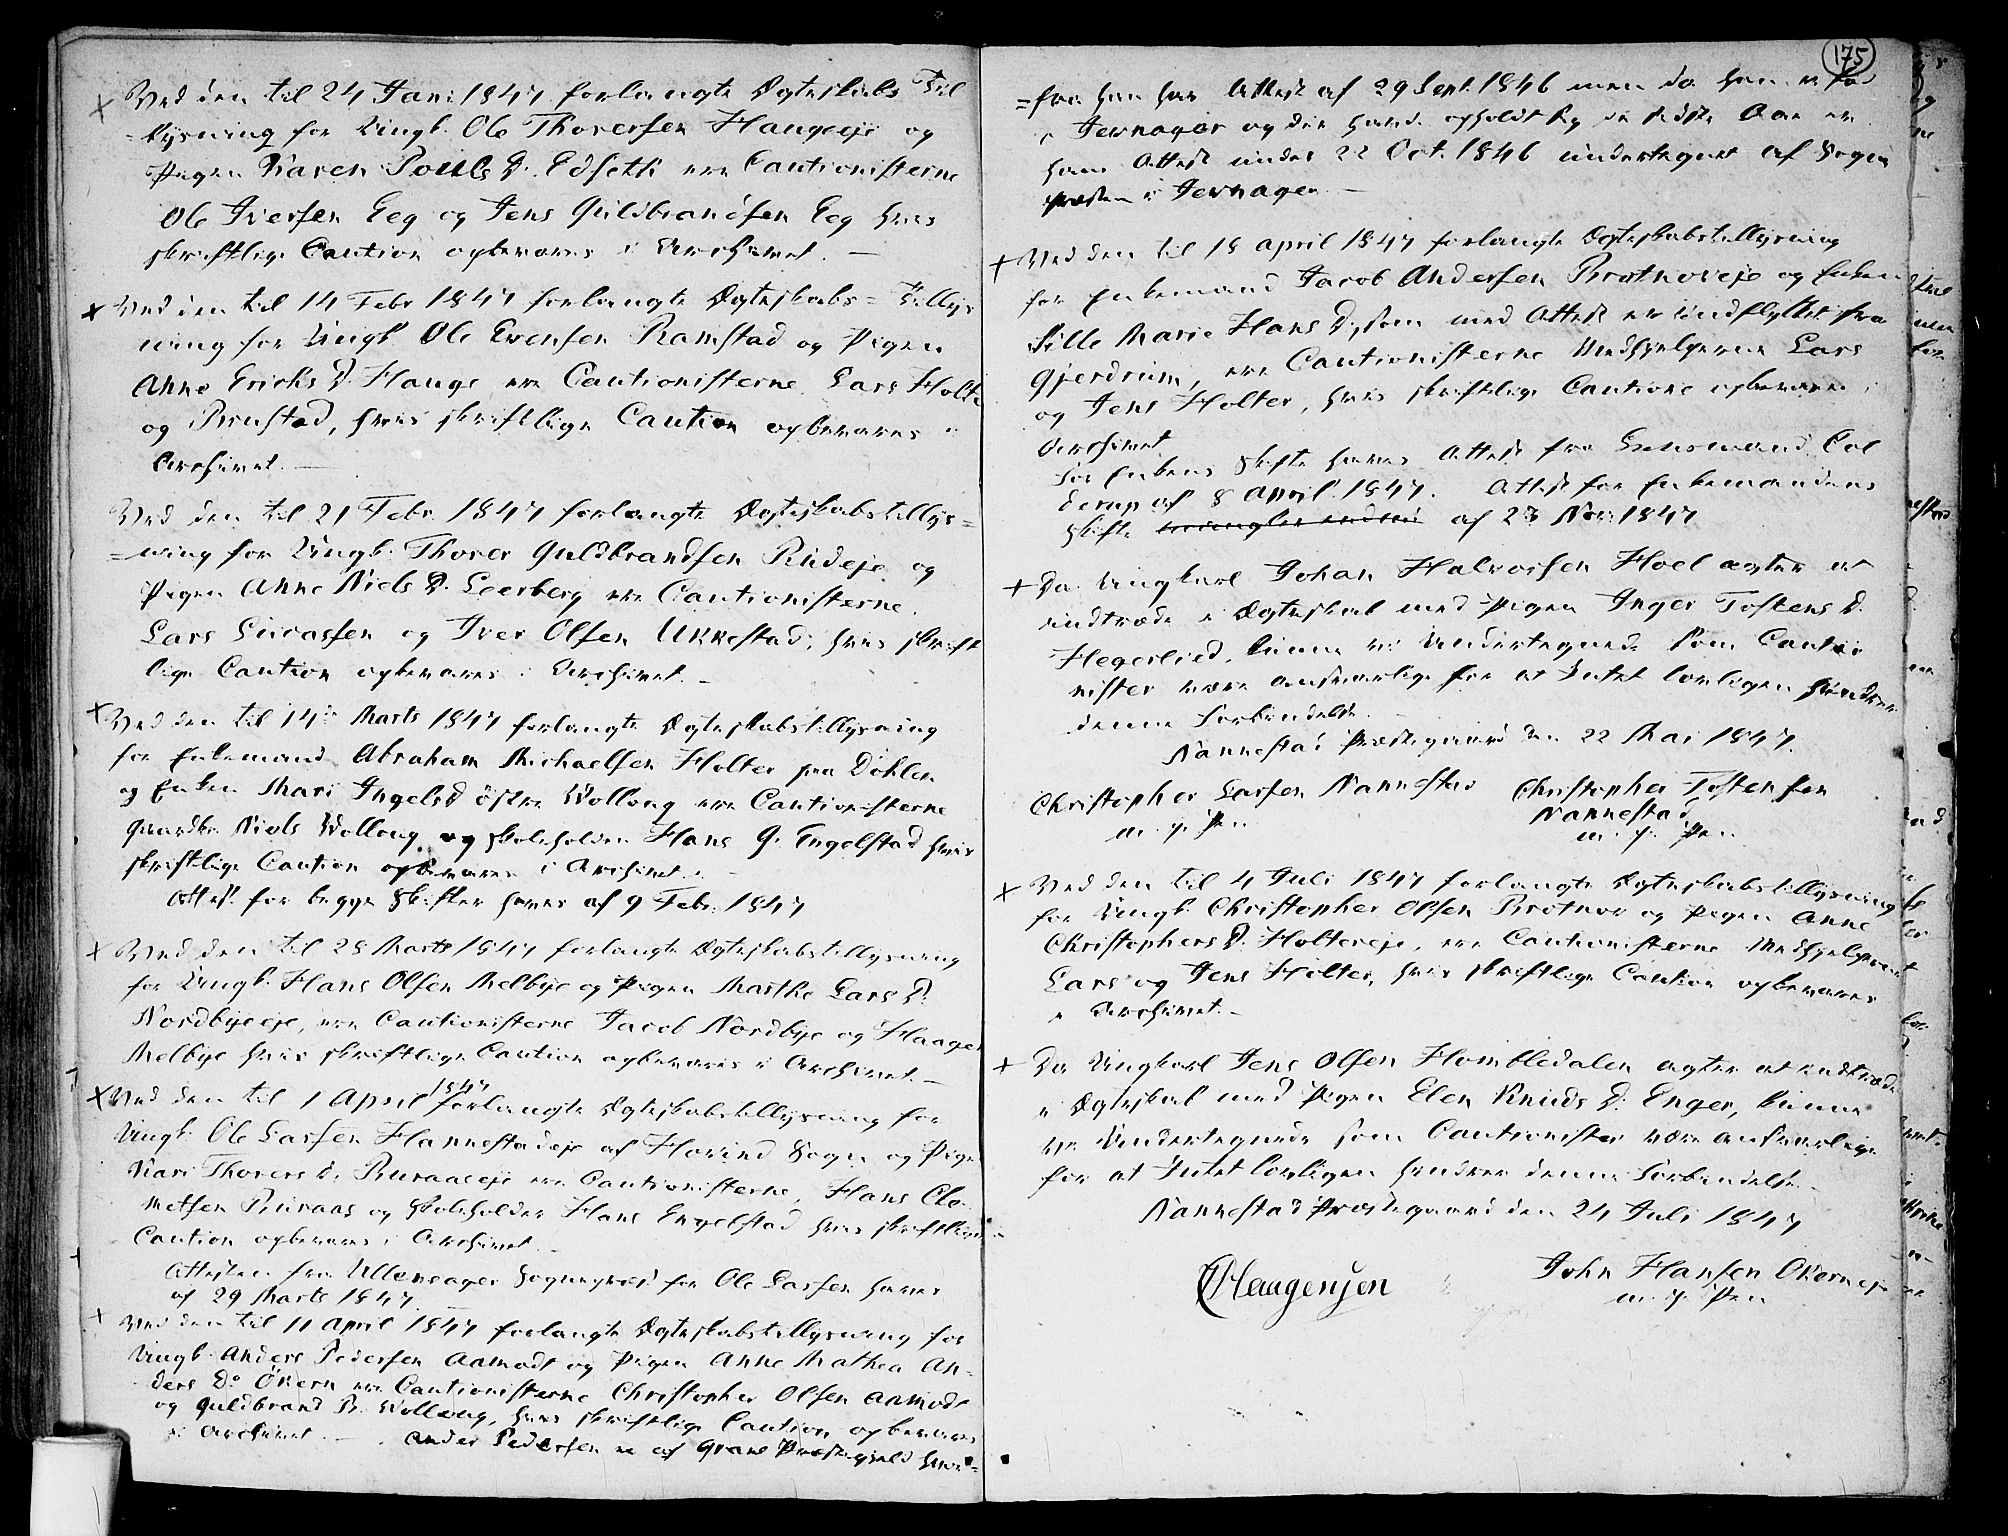 Ved den til 24 Jani 1847 forlangte Ægteskabs Til
lysning for Ungk. Ole Thoversen Haugeeje og
Pigen Karen Pouls D. Edseth ere Cautionisterne
Ole Iversen Eeg og Jens Guldbrandsen Eeg hvis
skriftlige Caution opbevares i Archivet. —
× Ved den til 14 Febr 1847 forlangte Ægteskabs= Tillys
ning for Ungk. Ole Evensen Ramstad og Pigen
Anne Ericks D. Hauge ere Cautionisterne Lars Holte
og Brustad, hvis skriftlige Caution opbevares i
Archivet. —
Ved den til 21 Febr. 1847 forlangte Ægteskabstillys=
=ning for Ungk. Thover Guldbrandsen Rudeje og
Pigen Anne Niels D. Leerberg ere Cautionisterne.
Lars Lucassen og Iver Olsen Ukkestad, hvis skrift
lige Caution opbevares i Archivet. —
× Ved den til 14de Marts 1847 forlangte Ægteskabstillysning
for Enkemand Abraham Michaelsen Holter paa Döhlen
og Enken Mari Ingelsd östre Wollong ere Cautionisterne
Gaardbr. Niels Wollong og Skoleholder Hans G. Engelstad hvis
skriftlige Caution opbevares i Archivet. —
Attest for begge Skifter haves af 9 Febr. 1847
× Ved den til 28 Marts 1847 forlangte Ægteskabstillysning
for Ungk. Hans Olsen Melbye og Pigen Marthe Lars D.
Nordbyeeje, ere Cautionisterne Jacob Nordbye og Haagen
Melbye hvis skriftlige Caution opbevares i Archivet. —
1847
× Ved den til 1 April forlangte Ægteskabstillysning for
Ungk. Ole Larsen Hannestadeje af Hovind Sogn og Pigen
Kari Thovers D. Ruraaseje ere Cautionisterne, Hans Cle
metsen Ruraas og Skoleholder Hans Engelstad hvis skriftlige
Caution opbevares i Archivet. —
Attesten fra Ullensager Sognepræst for Ole Larsen haves
af 29 Marts 1847
× Ved den til 11 April 1847 forlangte Ægteskabstillysning for
Ungk. Anders Pedersen Aamodt og Pigen Anne Mathea An=
ders D. Ökern ere Cautionisterne Christopher Olsen Aamodt
og Guldbrand P. Wollong, hvis skriftlige Caution opbevares
i Archivet. — Ander Pedersen er af Grane Præstegjeld hvor=
175
=fra han har Attest af 29 Sept. 1846 men da han er fød
i Jevnager og der havde opholdt sig de sidste Aar er
hans Attest under 22 Oct. 1846 undertegnet af Sogne
præsten i Jevnager. —
× Ved den til 18 April 1847 forlangte Ægteskabstillysning
for Enkemand Jacob Andersen Brotnoveje og Enken
Sille Marie Hans D., som med Attest er indflyttet fra
Gjerdrum, ere Cautionisterne Medhjelperne Lars
og Jens Holter, hvis skriftlige Cautione opbevares i
Archivet
For Enkens Skifte haves Attest fra Lensmand Col
derup af 8 April 1847. Attest for Enkemandens
Skifte af 23 Nov. 1847
× Da Ungkarl Johan Halvorsen Hoel agter at
indtræde i Ægteskab med Pigen Inger Tostens D.
Hegerlied, kunne vi Undertegnede som Cautio
nister være ansvarlige for at Intet lovligen hindrer
denne Forbindelse. —
Nannestad Præstegaard den 22 Mai 1847.
Christopher Larsen Nannestad Christopher Tostensen
m. p. Pen Nannestad
m. p. Pen
× Ved den til 4 Juli 1847 forlangte Ægteskabstillysning
for Ungk. Christopher Olsen Brotnov og Pigen Anne
Christophers D. Holtereje, ere Cautionisterne Medhjelperne
Lars og Jens Holter, hvis skriftlige Caution opbevares
i Archivet. —
× Da Ungkarl Jens Olsen Hombledalen agter at indtræde
i Ægteskab med Pigen Elen Knuds D. Enger, kunne
vi Undertegnede som Cautionister være ansvarlige
for at Intet lovligen hindrer denne Forbindelse —
Nannestad Præstegaard den 24 Juli 1847
CHaagensen John Hansen Okerneje
m. p. Pen